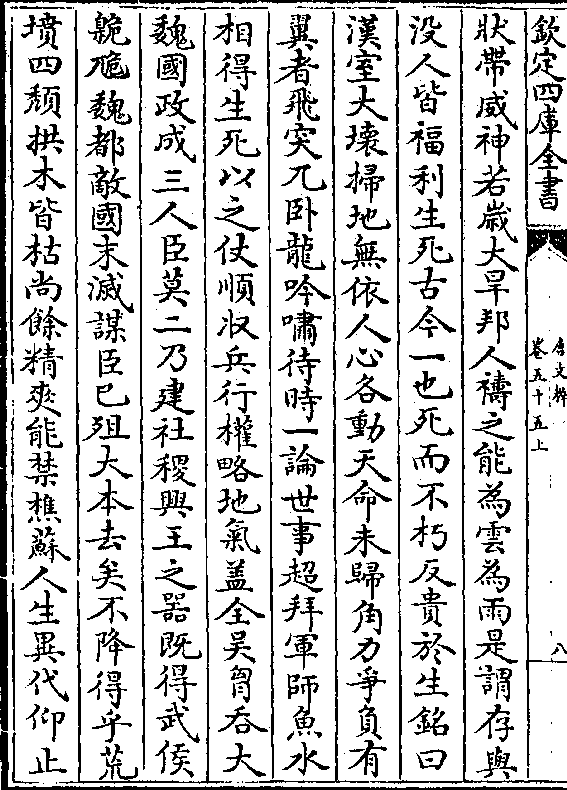 欽定四庫全書
唐文粹
卷五十五上
八
狀帶威神若歲大旱邦人禱之能為雲為雨是謂存與
没人皆福利生死古今一也死而不朽反貴於生銘曰
漢室大壞掃地無依人心各動天命未歸角力爭負有
翼者飛突兀卧龍吟嘯待時一論世事超拜軍師魚水
相得生死以之仗順収兵行權略地氣盖全吳胷吞大
魏國政成三人臣莫二乃建社稷興王之器既得武侯
𩪘卼魏都敵國未滅謀臣已殂大本去矣不降得乎荒
墳四頽拱木皆枯尚餘精爽能禁樵蘇人生異代仰止